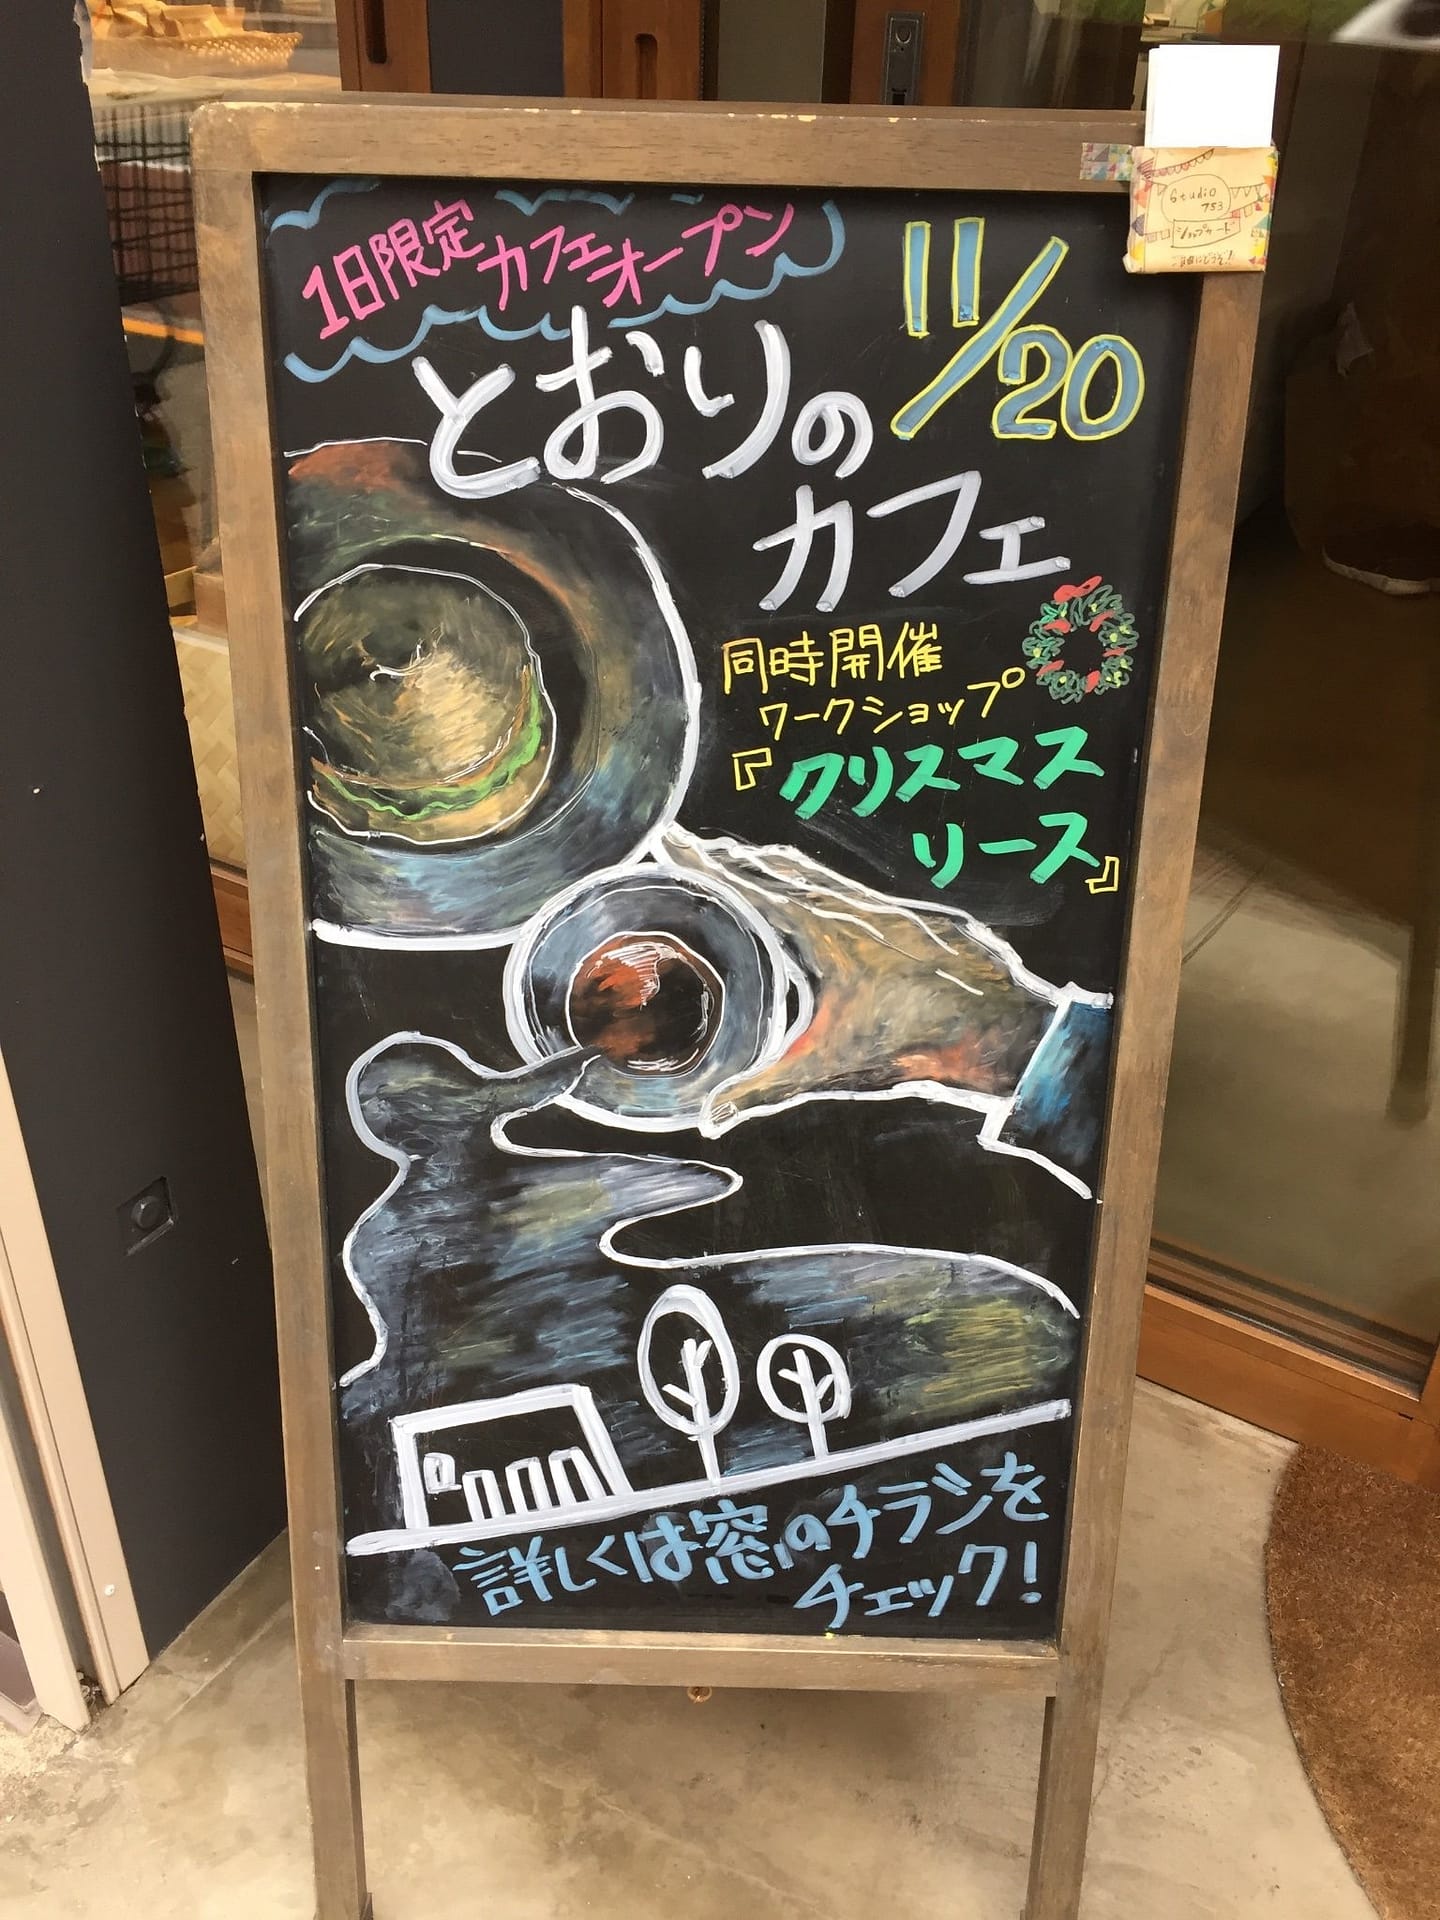 1日限定カフェオープン
11/20
とおりの
カフェ
同時開催
ワークショップ
『クリスマス
リース』
詳しくは窓のチラシを
チェック!
Studio
753
ショップカード
ご自由にどうぞ!!